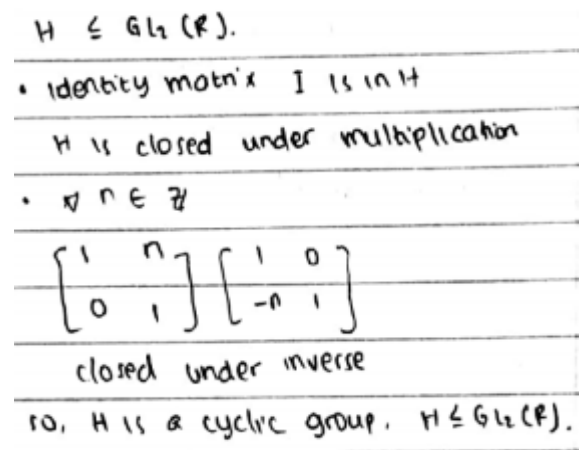 H ≤ GL₂ (R).
• Identity matrix I is in H
H is closed under multiplication
• ∀ n ∈ Z
[1 n; 0 1] [1 0; -n 1]
closed under inverse
so, H is a cyclic group. H ≤ GL₂ (R).